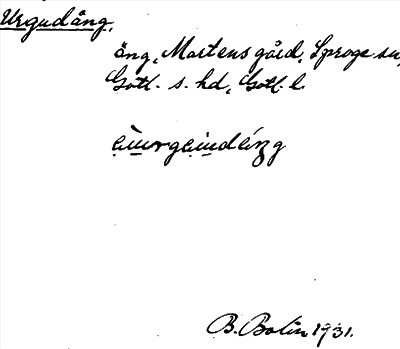 Urgudäng.
äng, Martens gård, Sproge sn,
Gotl. s. hd, Gotl. l.
B. Bolin 1931.